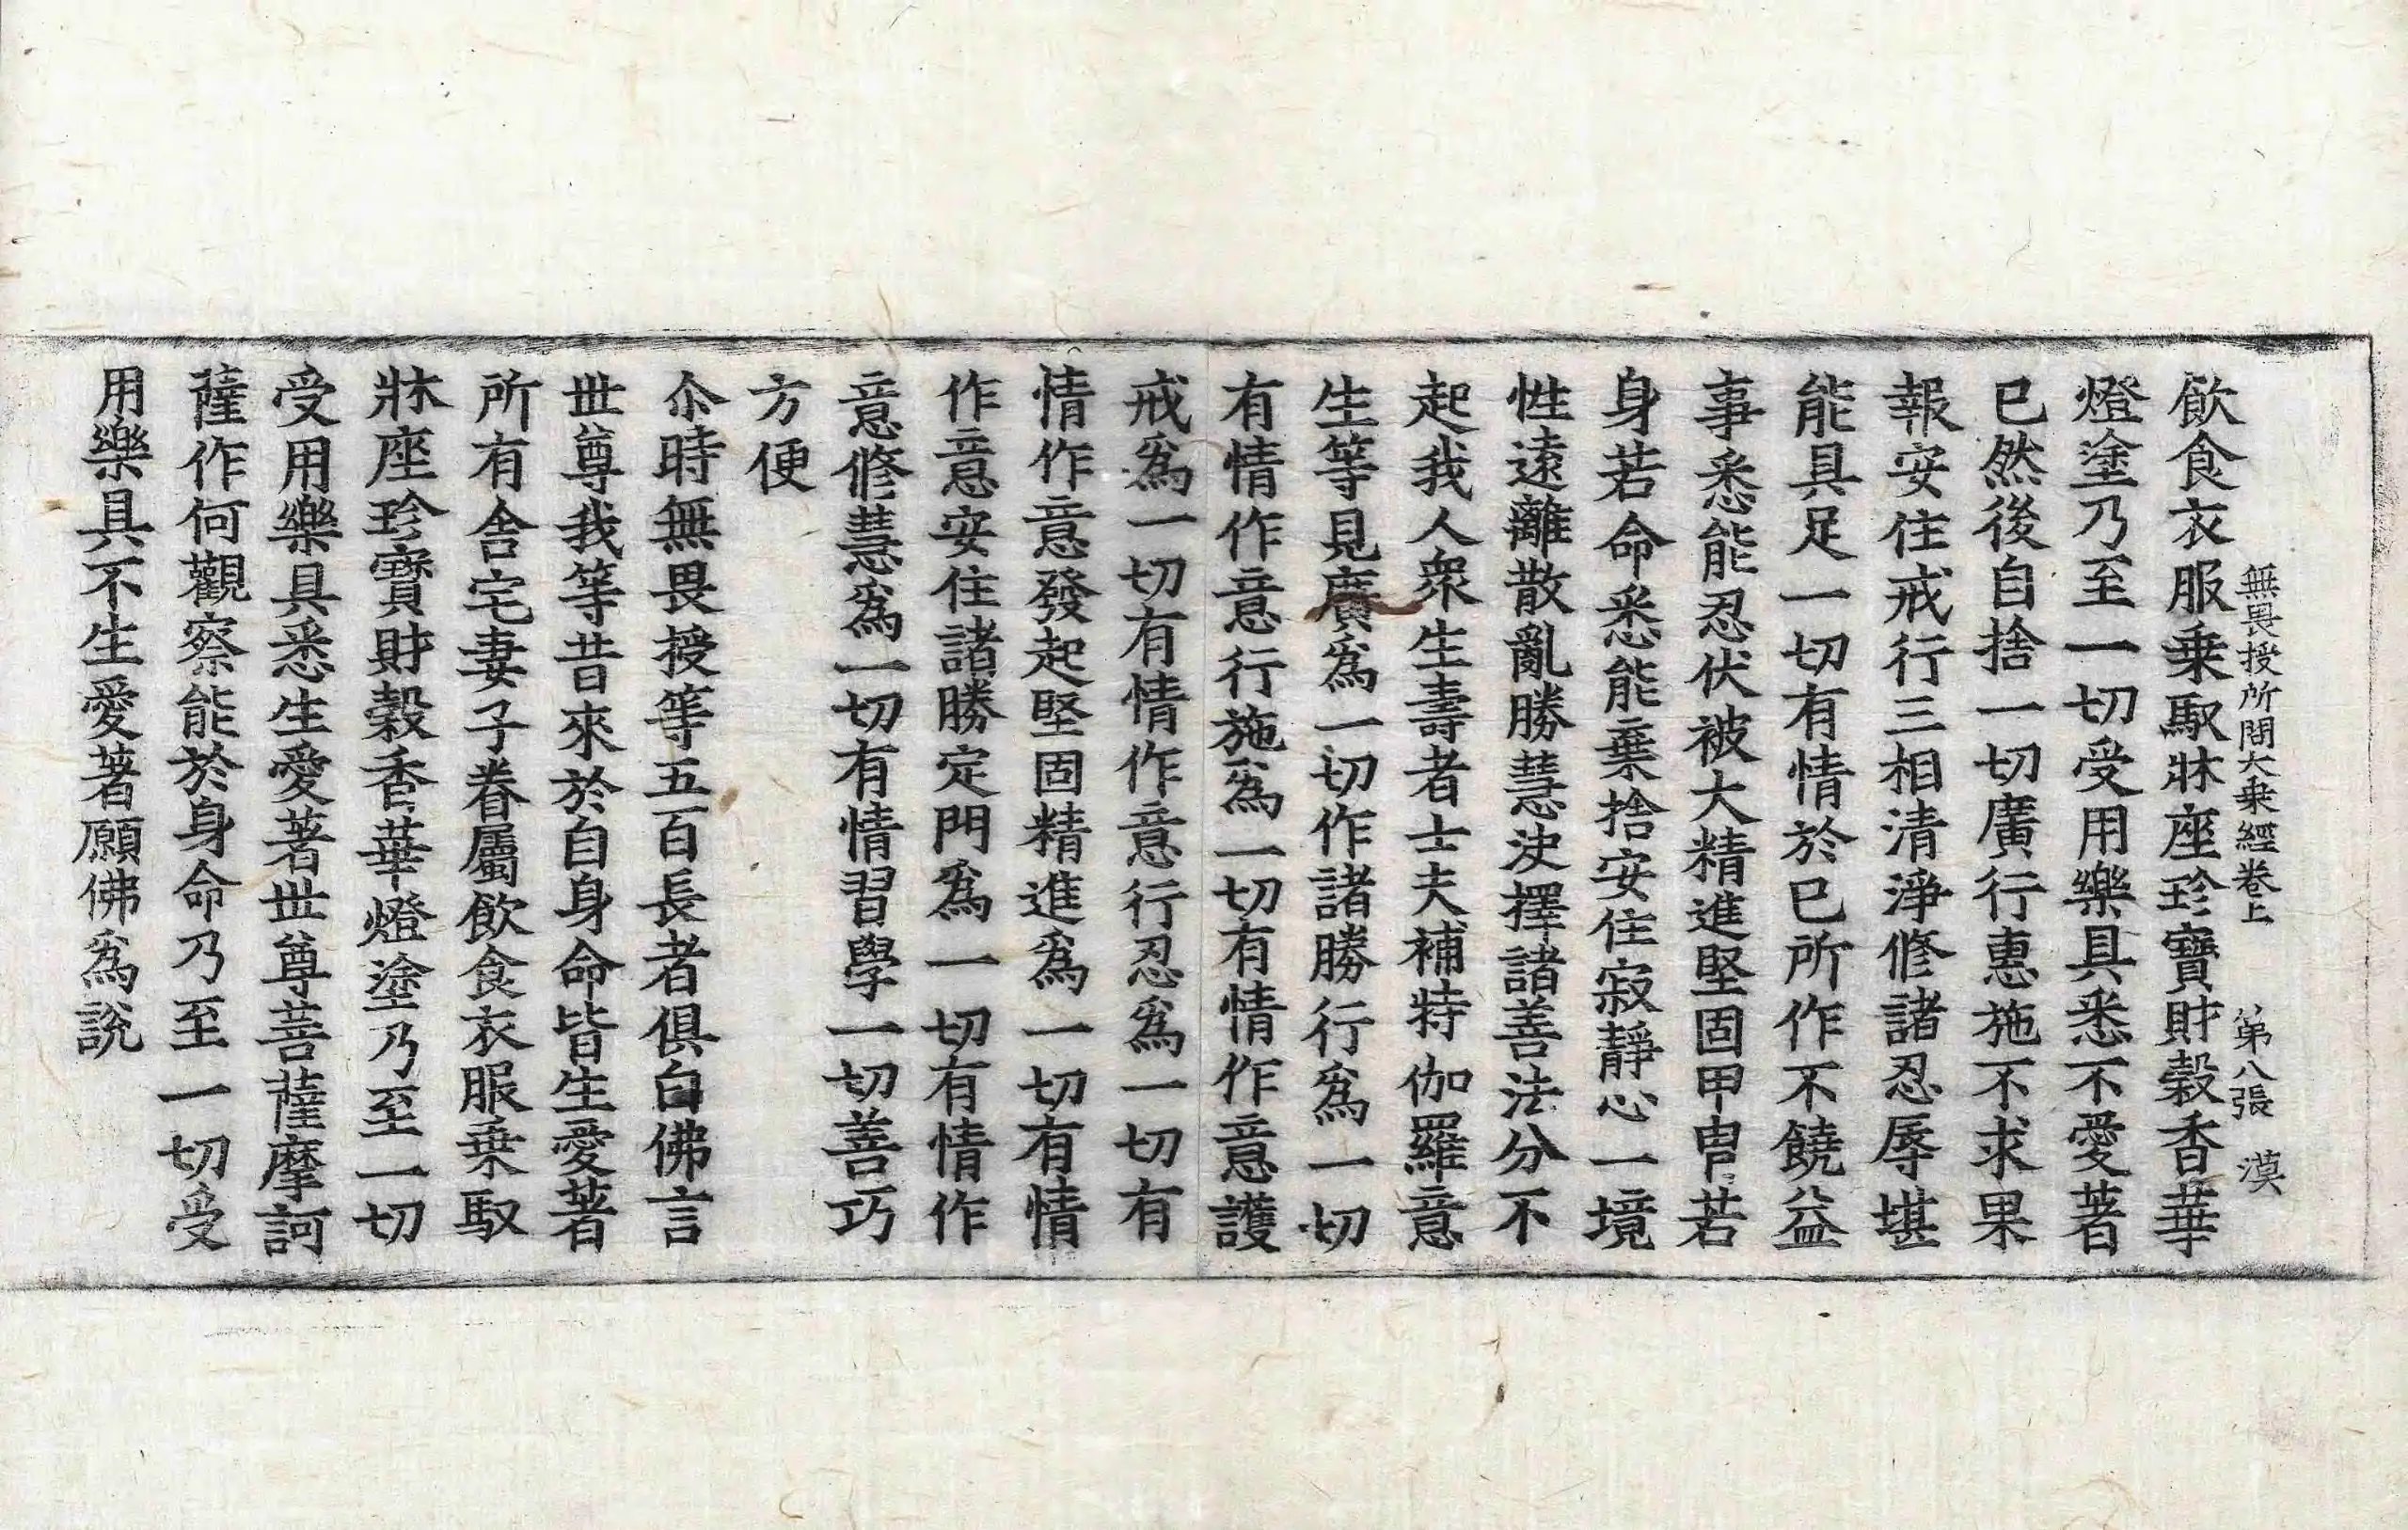 無畏授所問大乗經卷上　第八張　漠
飮食衣服乗馭牀座珍寶財榖香華
燈塗乃至一切受用樂具悉不愛著
已然後自捨一切廣行惠施不求果
報安住戒行三相清淨修諸忍辱堪
能具足一切有情於已所作不饒益
事悉能忍伏被大精進堅固甲冑若
身若命悉能棄捨安住寂靜心一境
性遠離散亂勝慧決擇諸善法分不
起我人衆生壽者士夫補特伽羅意
生等見廣爲一切作諸勝行爲一切
有情作意行施爲一切有情作意護
戒爲一切有情作意行忍爲一切有
情作意發起堅固精進爲一切有情
作意安住諸勝定門爲一切有情作
意修慧爲一切有情習學一切善巧
方便
尒時無畏授等五百長者俱白佛言
世尊我等昔來於自身命皆生愛著
所有舍宅妻子眷屬飮食衣服乗馭
牀座珍寶財榖香華燈塗乃至一切
受用樂具悉生愛著世尊菩薩摩訶
薩作何觀察能於身命乃至一切受
用樂具不生愛著願佛爲說